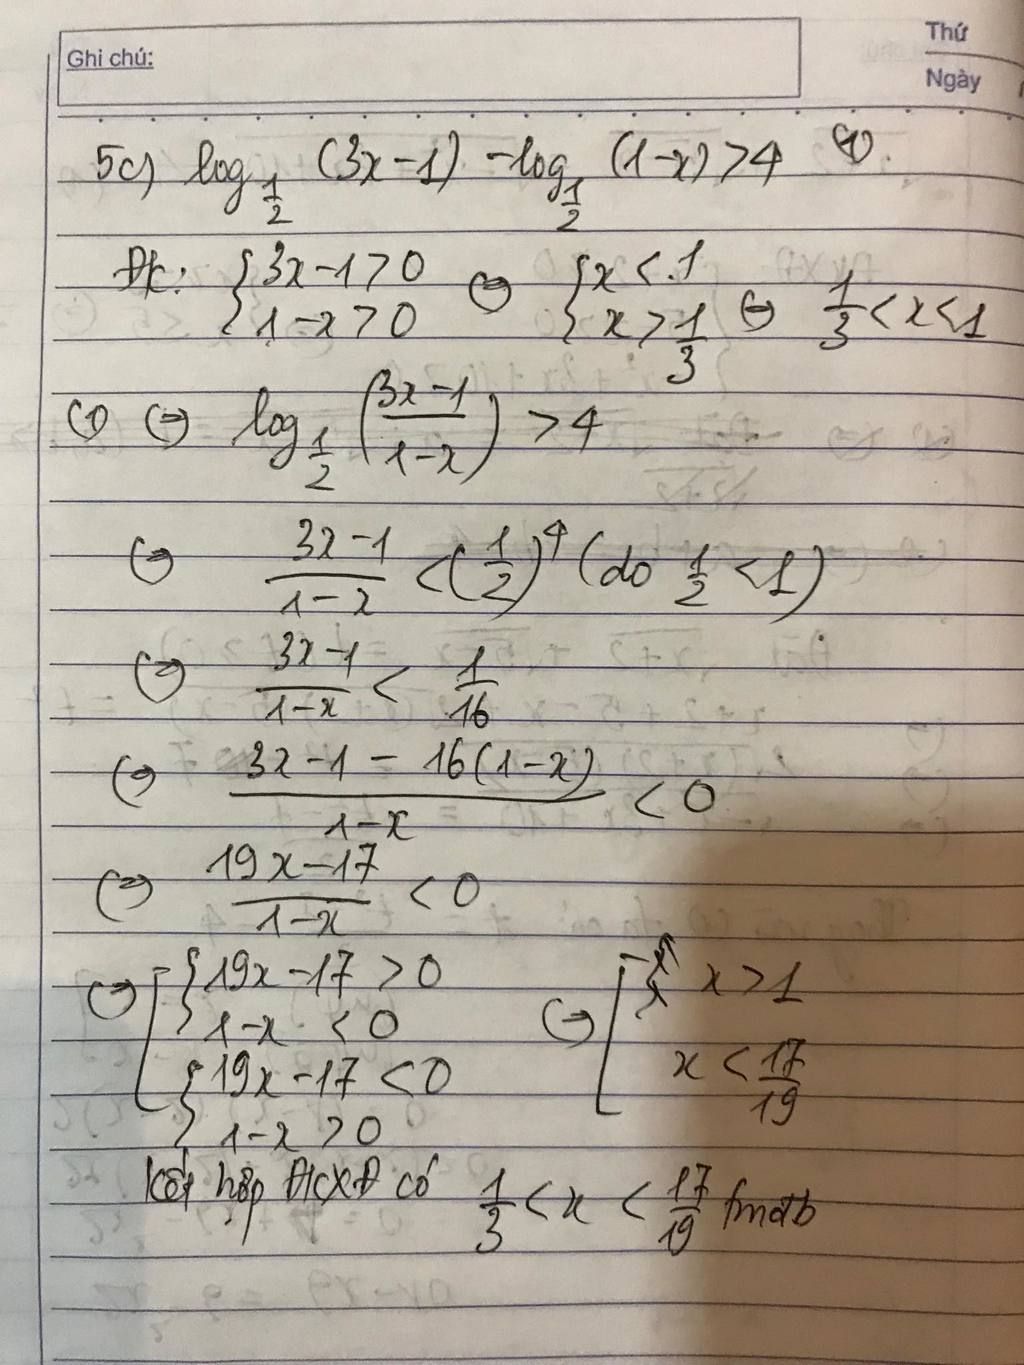 Ghi chú:
Thứ
Ngày
5c) log_{1/2} (3x-1) - log_{1/2} (1-x) > 4 (1)
Đk: { 3x-1 > 0 ; 1-x > 0 (=) { x < 1 ; x > 1/3 (=) 1/3 < x < 1
(1) (=) log_{1/2} ( (3x-1)/(1-x) ) > 4
(=) (3x-1)/(1-x) < (1/2)^4 (do 1/2 < 1)
(=) (3x-1)/(1-x) < 1/16
(=) (3x-1 - 16(1-x))/(1-x) < 0
(=) (19x-17)/(1-x) < 0
(=) [ { 19x-17 > 0 ; 1-x < 0 ; { 19x-17 < 0 ; 1-x > 0 (=) [ x > 1 ; x < 17/19
Kết hợp ĐKXĐ có 1/3 < x < 17/19 tmđb